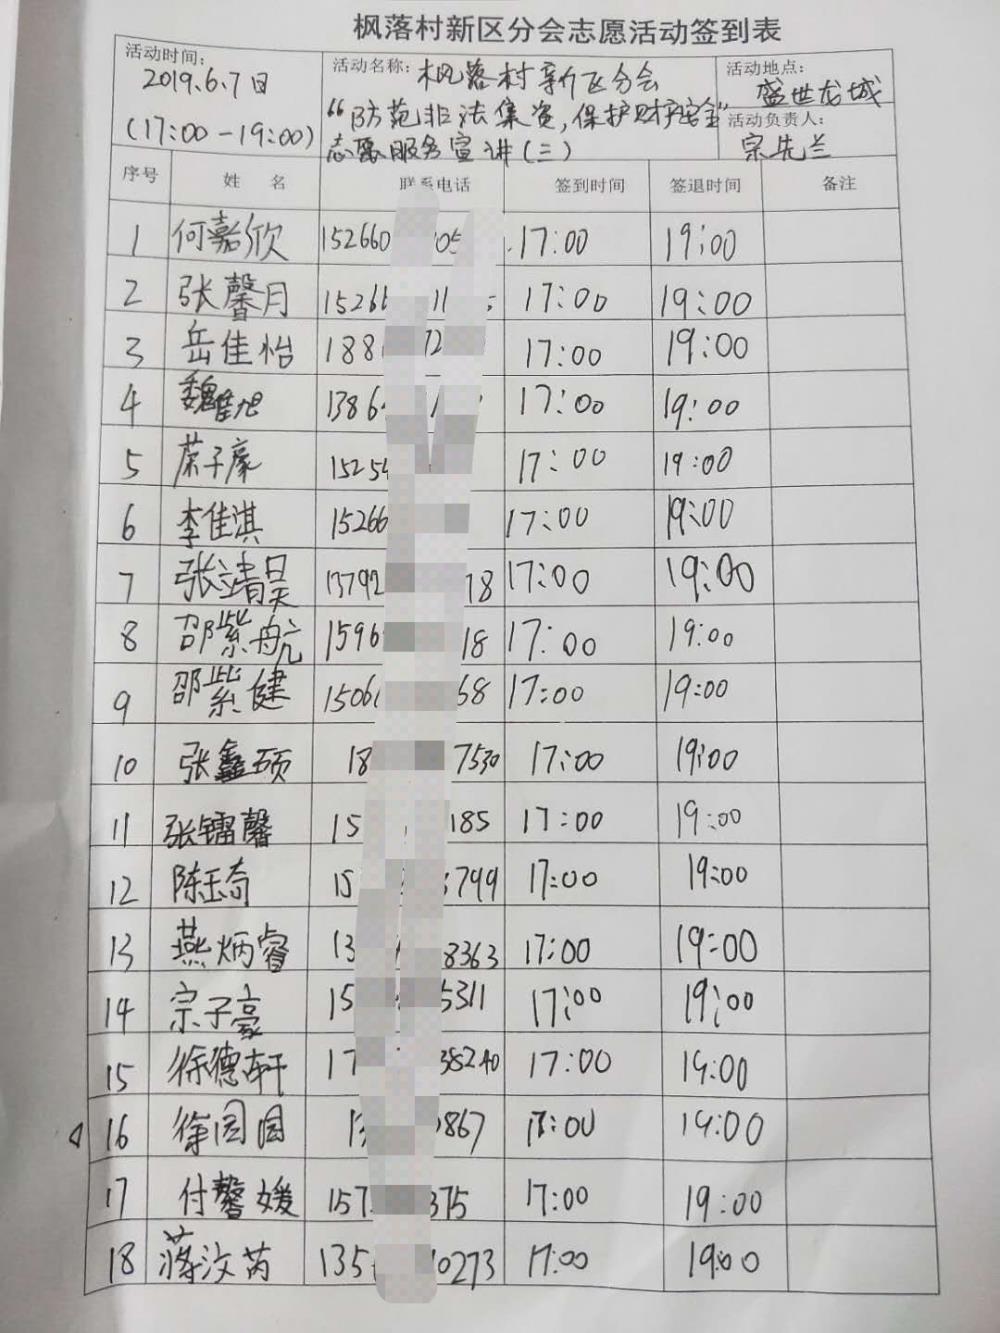 枫落村新区分会志愿活动签到表
活动时间: 2019.6.7日
(17:00-19:00)
活动名称: 枫落村新区分会
“防范非法集资,保护财产安全”
志愿服务宣讲(三)
活动地点:
盛世龙城
活动负责人:
宗先兰
序号 姓名 联系电话 签到时间 签退时间 备注
1 何嘉欣 152660 05 17:00 19:00
2 张馨月 1526 11 17:00 19:00
3 岳佳怡 188 72 17:00 19:00
4 魏 旭 1386 17:00 19:00
5 子豪 1525 17:00 19:00
6 李佳淇 15266 17:00 19:00
7 张靖昊 13792 78 17:00 19:00
8 邵紫航 1596 18 17:00 19:00
9 邵紫健 1506 68 17:00 19:00
10 张鑫硕 18 7530 17:00 19:00
11 张镭馨 15 185 17:00 19:00
12 陈玉奇 15 3799 17:00 19:00
13 燕炳睿 13 8363 17:00 19:00
14 宗子豪 15 5311 17:00 19:00
15 徐德轩 17 38240 17:00 19:00
16 徐圆圆 1 0867 17:00 19:00
17 付馨媛 157 375 17:00 19:00
18 蒋汶芮 135 10273 17:00 19:00